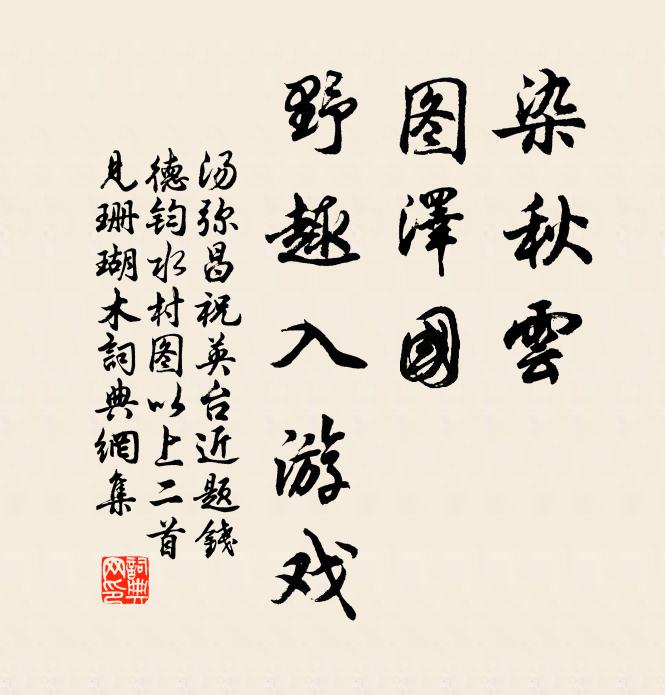 染秋雲
图澤國
野趣入游戏
汤弥昌祝英台近题錢
德钧水村图以上二首
见珊瑚木詞典網集
詞典
网印